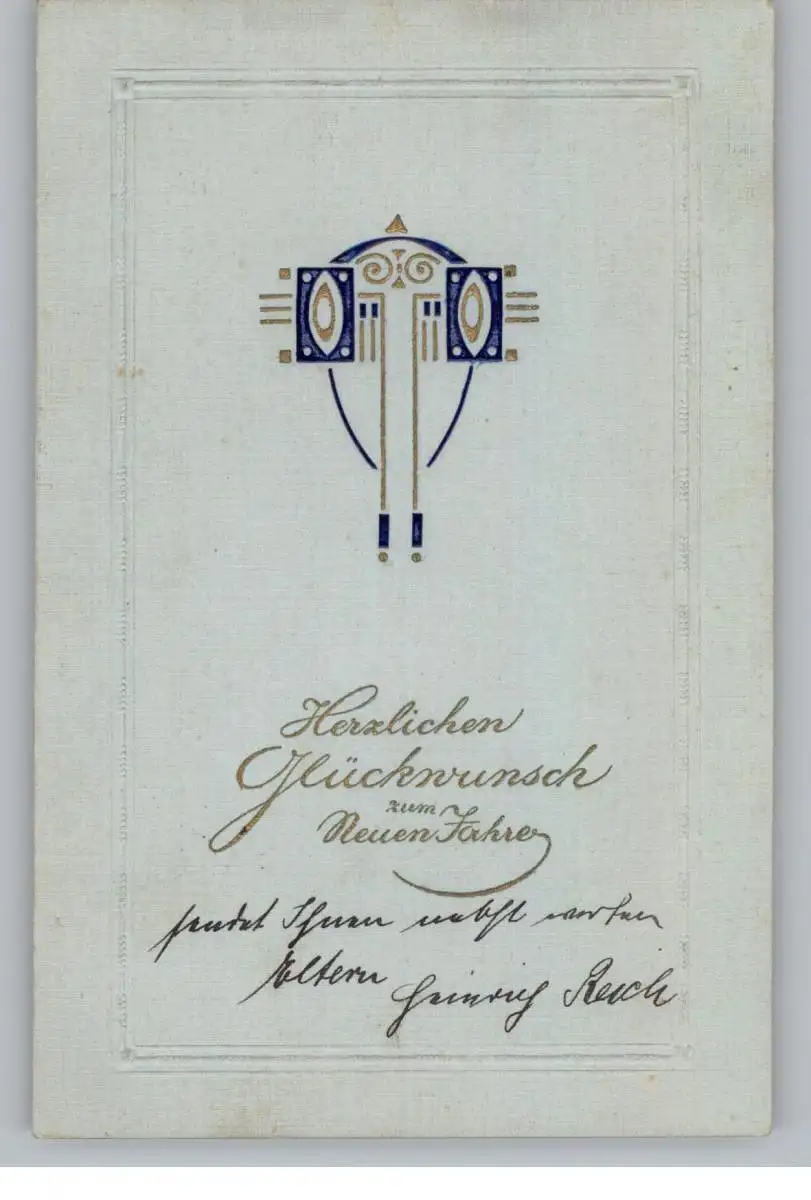 Herzlichen
Glückwunsch
zum
Neuen Jahre
sendet Ihnen nebst werten
Eltern Heinrich Reich